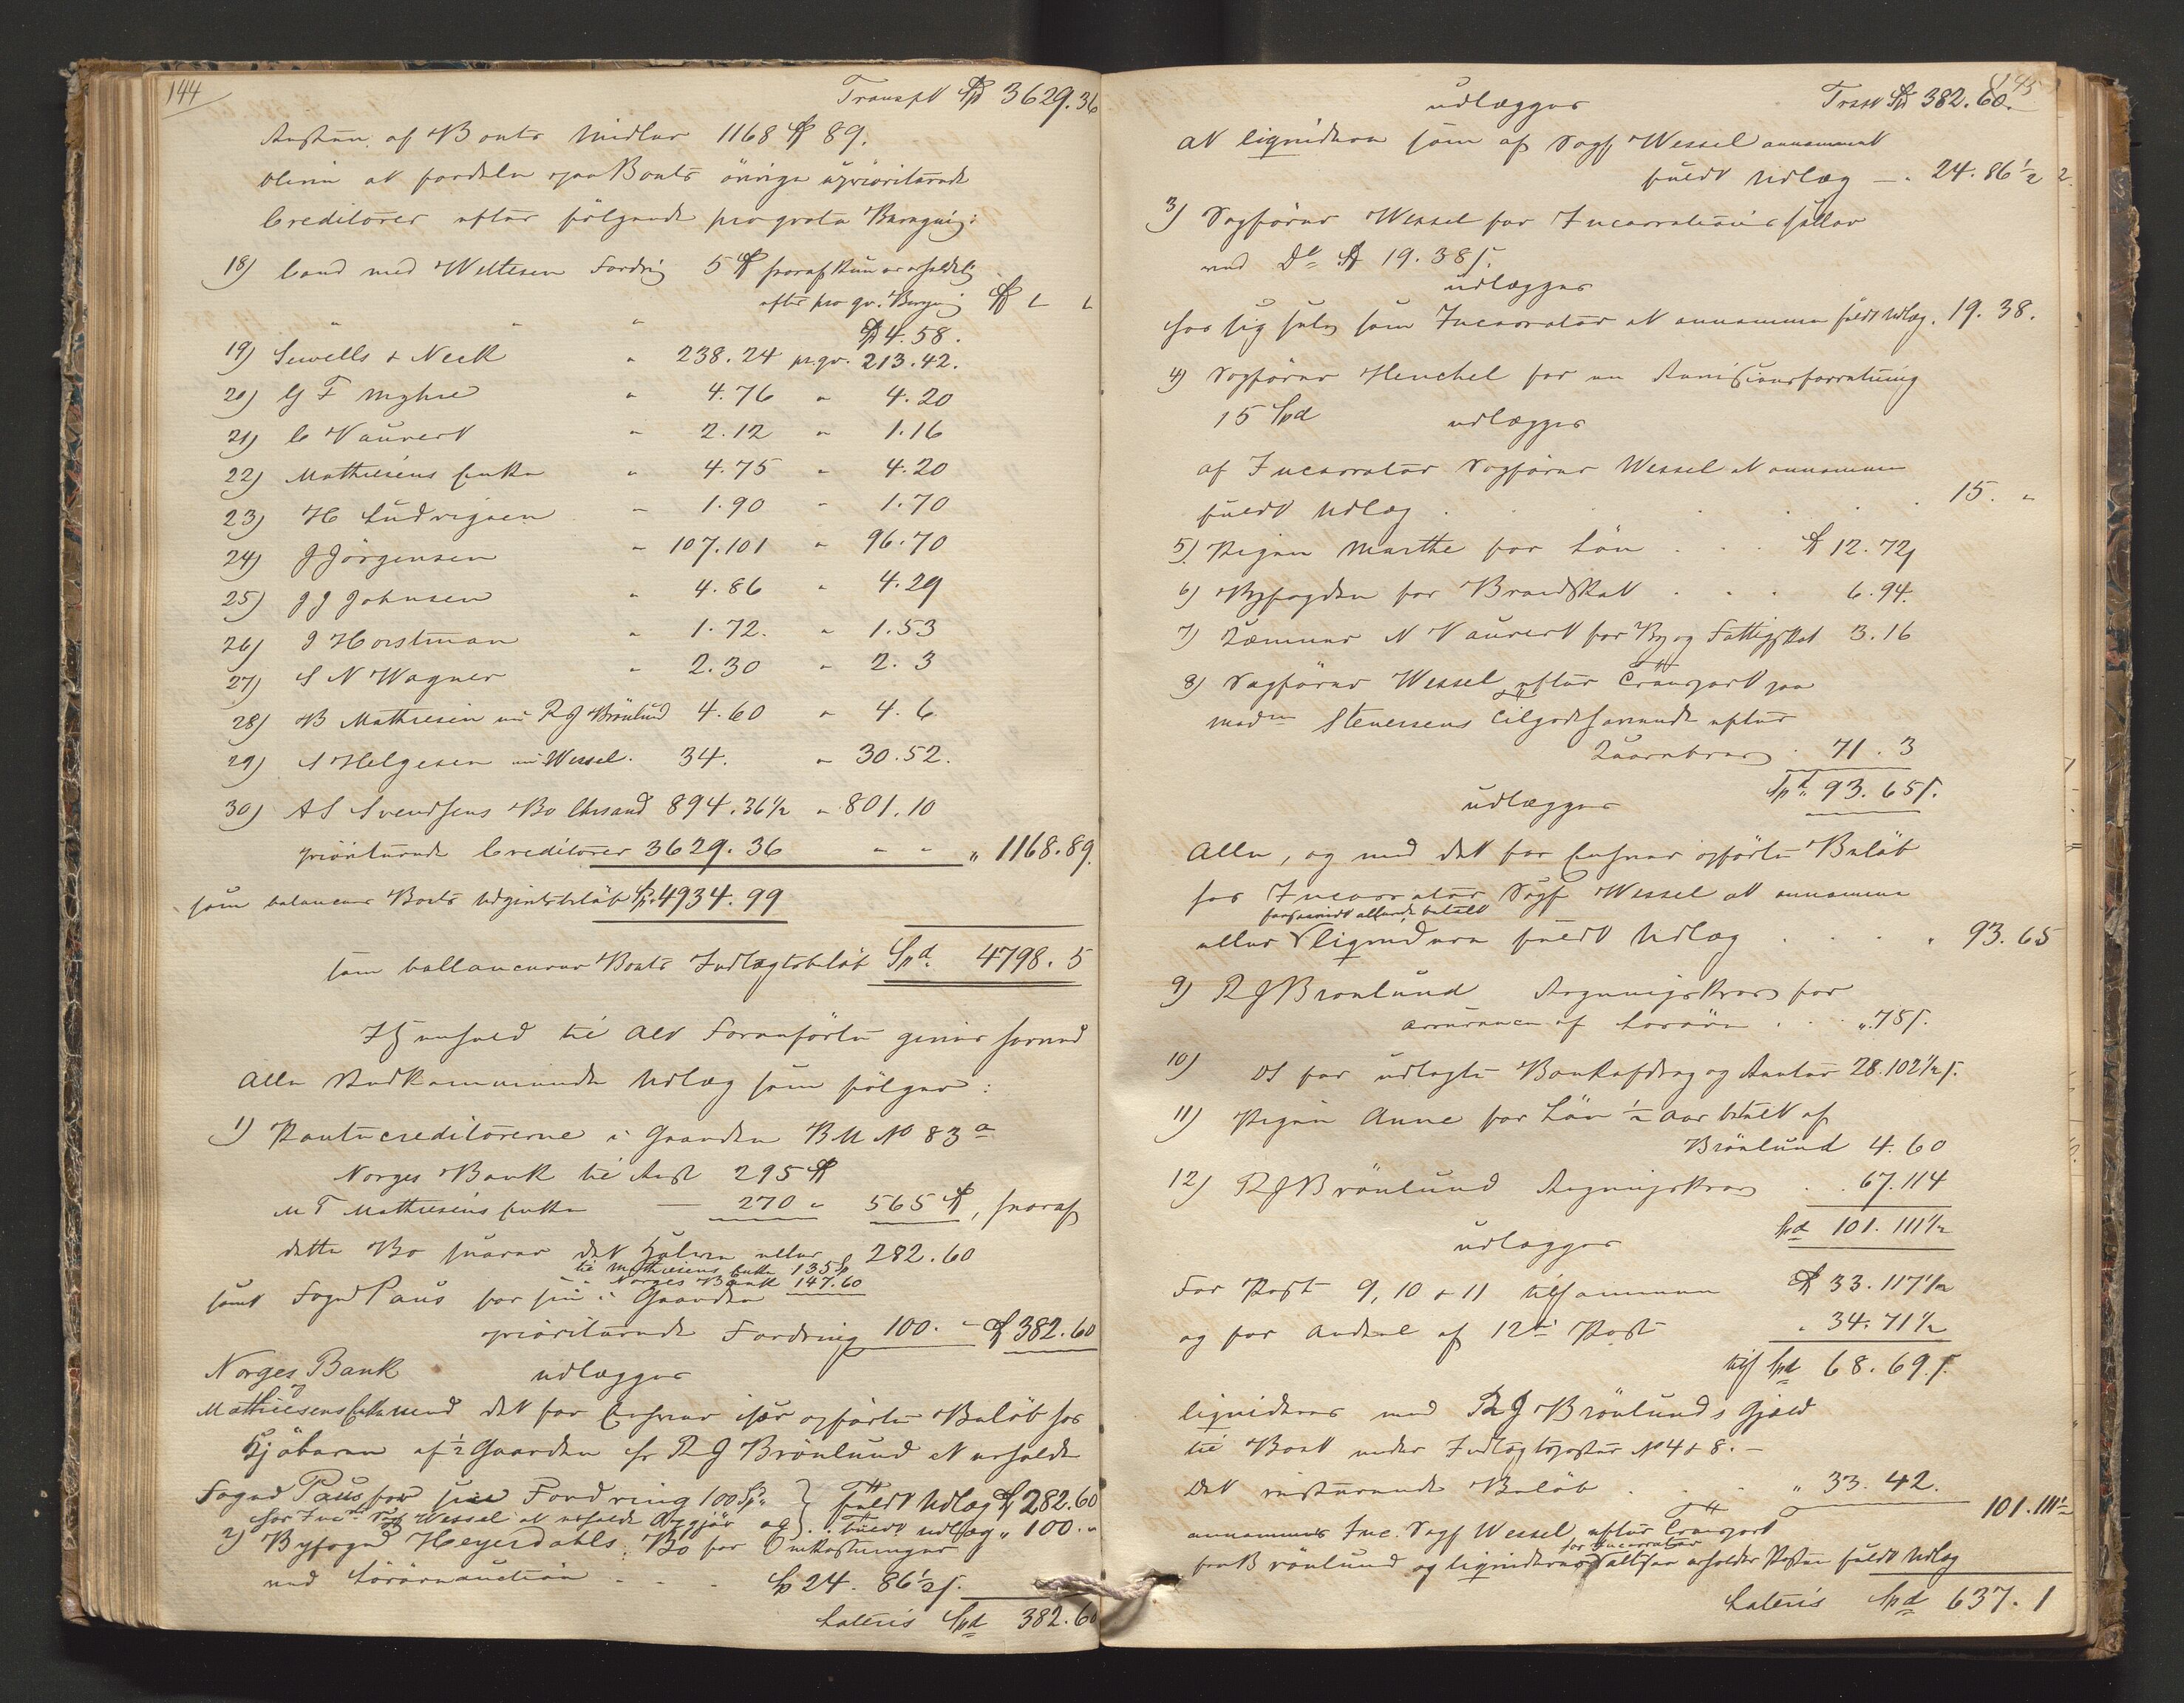 144
Transpt Spd 3629. 36
Resten af Boets Midler 1168 Spd 89.
bliver at fordele paa Boets övrige uprioriterede
Creditorer efter fölgende pro qvota Beregning:
18) Cand med Weltesen Fordrig 5 Spd hvoraf kun er erholdelig
efter pro qv. Bergnig
Spd 4. 58.
19) Sewells & Neck " 238. 24 pr. qv. 213. 42.
20) G F Myhre " 4. 76 " 4. 20
21) C Nauvert " 2. 12 " 1. 16
22) Mathiesens Enke " 4. 75 " 4. 20
23) H Ludvigsen " 1. 90 " 1. 70
24) J Jörgensen " 107. 101 " 96. 70
25) J J Johnsen " 4. 86 " 4. 29
26) J Horstman " 1. 72. " 1. 53
27) S N Wagner " 2. 30 " 2. 3
28) B Mathiesen nu R J Brönlund 4. 60 " 4. 6
29) A Helgesen nu Wessel. 34. " 30. 52.
30) A S Svendsens Bo Chrsand 894. 36 1/2 " 801. 10
prioriterede Creditorer 3629. 36 " " " 1168. 89.
som balancerer Boets Udgiftsbelöb Sp. 4934. 99
som ballancerer Boets Indtægtsbelöb Spd. 4798. 5
I Henhold til alt Foranförte gives herved
alle Vedkommende Udlæg som fölger:
1) Pantecreditorerne i Gaarden B M No 83 a
Norges Bank til Rest 295 Spd
M T Mathiesens Enke — 270 " 565 Spd, hvoraf
dette Bo svarer det Halve eller 282. 60
til Mathiesens Enke 135 Sp
" Norges Bank 147. 60
samt Foged Paus for sin i Gaarden
prioriterede Fordring 100. " Spd 382. 60
Norges Bank udlægges
og
Mathiesens Enke med det for Enhver især opförte Belöb hos
Kjöberen af 1/2 Gaarden Hr R J Brönlund at erholde
fuldt Udlæg Spd 282. 60
Foged Paus for sin Fordring 100 Sp.
hos Inc. Sagf Wessel at erholde Opgjör og fuldt udlæg " 100. "
2) Byfoged Heyerdahls Bo for Omkostninger
ved Lösöreauction . . . Sp 24. 86 1/2 s.
Lateris Spd 382. 60
145
Trspt Spd 382. 60.
udlægges
at liquidere som af Sagf Wessel annammet
fuldt Udlæg —. 24. 86 1/2
3) Sagförer Wessel for Incasrations Sallær
ved Do Spd 19. 38 s.
udlægges
hos sig selv som Incasrator at annamme fuldt Udlæg. 19. 38.
4) Sagförer Henchel for en Auctionsforretning
15 Spd udlægges
af Incasrator Sagförer Wessel at annamme
fuldt Udlæg . . . . . 15. "
5) Pigen Marthe for Lön . . . Spd 12. 72
6) Byfogden for Brandskat . . . 6. 94.
7) Kæmner N Nauvert for By og Fattigskat 3. 16
8) Sagförer Wessel efter Transport paa
Madm Stenersens Tilgodehavende efter
Qværnbrug . 71. 3
Spd. 93. 65 s.
udlægges
Alle, og med det for Enhver opförte Belöb
hos Incasrator Sagf Wessel at annamme
forsaavidt allerede betalt
eller liquidere fuldt Udlæg . . . . 93. 65
9) R J Brönlund Regningskrav for
assurancen af Lösöre . . . " 75 s.
10) Ds for udlagte Bankafdrag og Renter 28. 102 1/2 s.
11) Pigen Anne for Lön 1/2 Aar betalt af
Brönlund 4. 60
12) R J Brönlund Regningskrav . . 67. 114
Spd 101. 111 1/2
udlægges
For Post 9, 10 & 11 tilsammen Spd 33. 117 1/2
og for Andel af 12te Post " 34. 71 1/2
tils Spd 68. 69 s.
liquideres med R J Brönlunds Gjæld
til Boet under Indtægtsposter No 4 & 8. —
det resterende Belöb . . . " 33. 42.
101. 111 1/2
annammes Inc. Sagf Wessel efter Transport
for Incasrator
fra Brönlund og liquideres altsaa erholder Posten fuldt Udlæg
Lateris Spd 637. 1